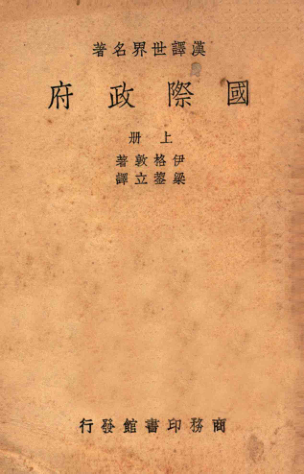 漢譯世界名著
國際政府
上册
伊格敦著
梁鋆立譯
商務印書館發行